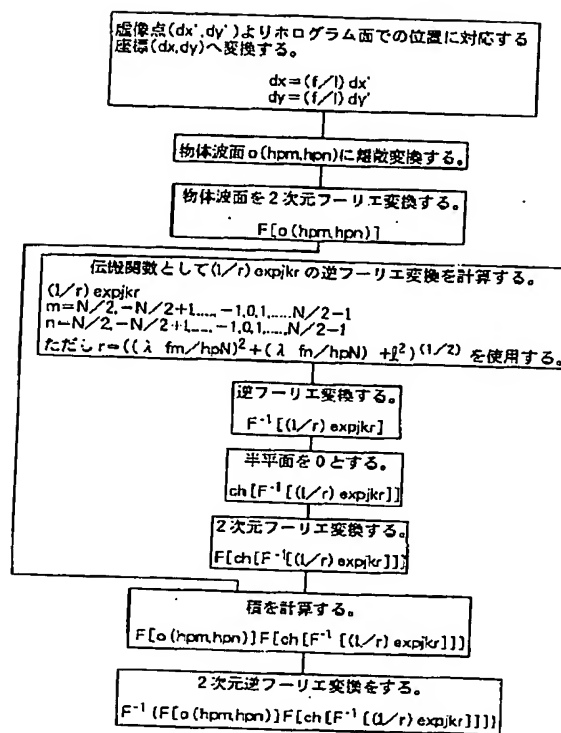 虚像点(dx',dy')よりホログラム面での位置に対応する
座標(dx,dy)へ変換する。
dx=(f/l) dx'
dy=(f/l) dy'
物体波面o(hpm,hpn)に離散変換する。
物体波面を2次元フーリエ変換する。
F[o(hpm,hpn)]
伝搬関数として(1/r) expjkr の逆フーリエ変換を計算する。
(1/r) expjkr
m=N/2,-N/2+1,....,-1,0,1,.....N/2-1
n-N/2,-N/2+1,....,-1,0,1,.....N/2-1
ただしr=((λ fm/hpN)²+(λ fn/hpN) +ℓ²)^(1/2) を使用する。
逆フーリエ変換する。
F⁻¹[(1/r) expjkr]
半平面を0とする。
ch[F⁻¹[(1/r) expjkr]]
2次元フーリエ変換する。
F[ch[F⁻¹[(1/r) expjkr]]]
積を計算する。
F[o(hpm,hpn)]F[ch[F⁻¹[(1/r) expjkr]]]
2次元逆フーリエ変換をする。
F⁻¹{F[o(hpm,hpn)]F[ch[F⁻¹[(1/r) expjkr]]]}